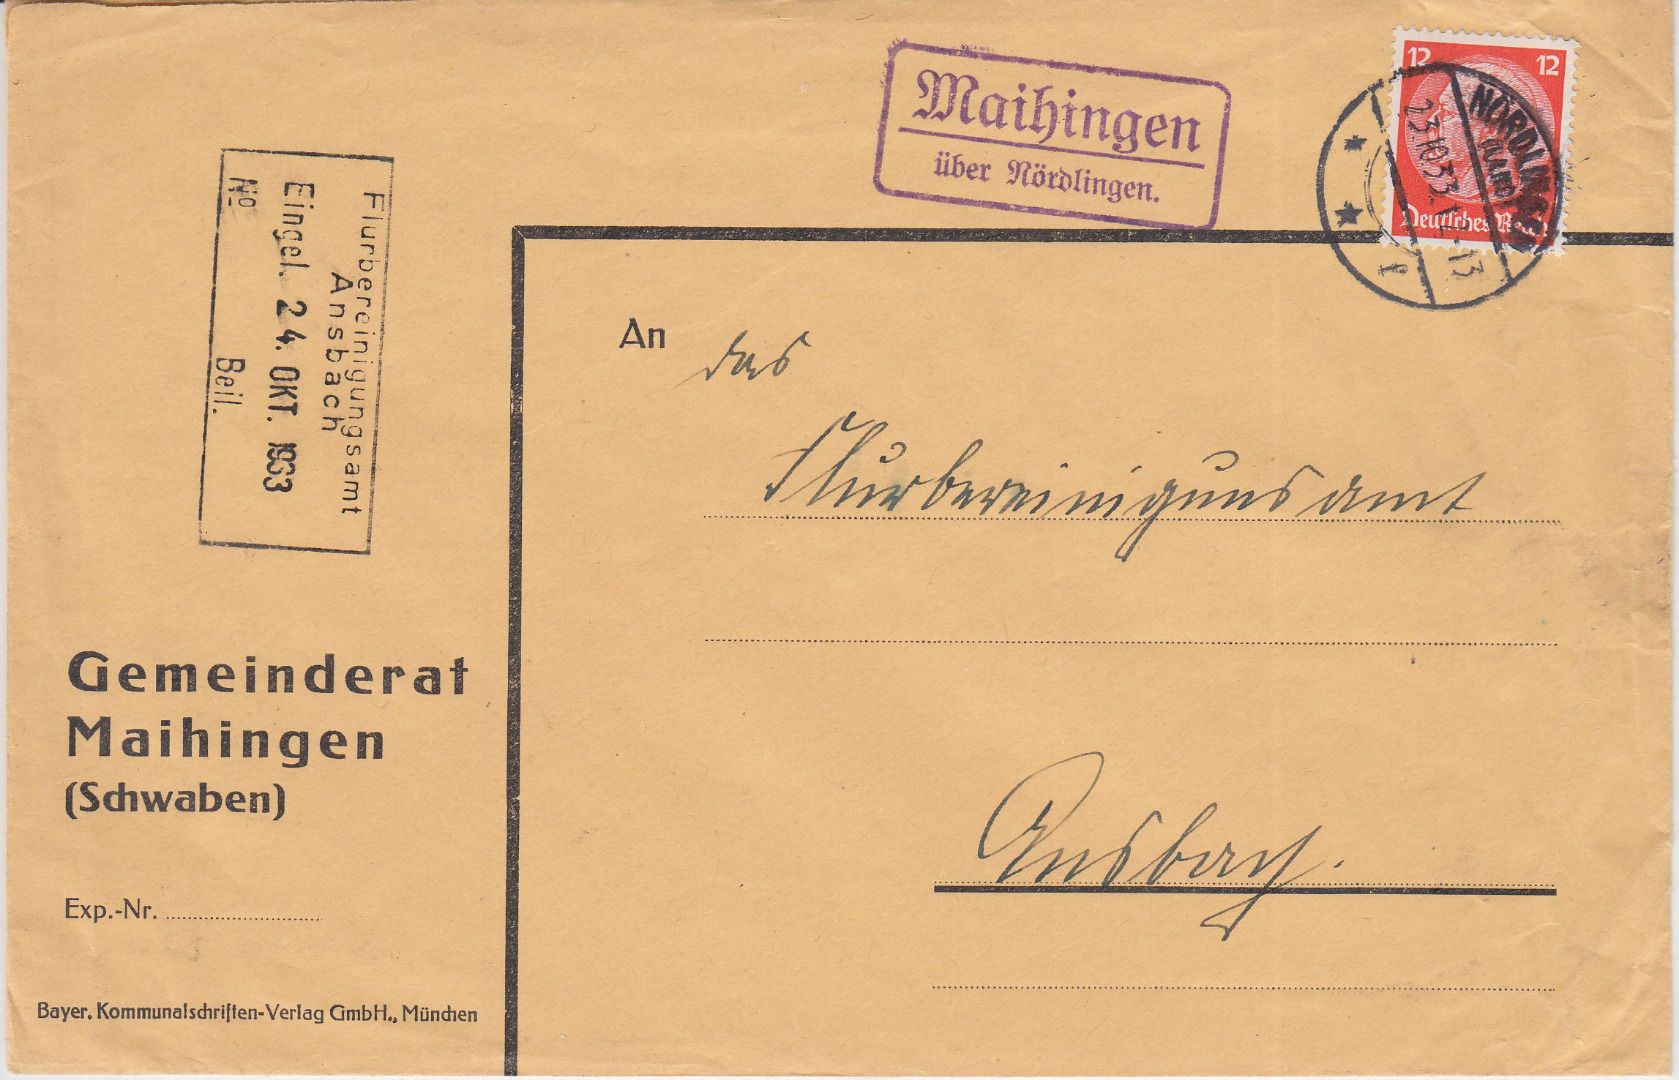 Maihingen
über Nördlingen.
12 12
Deutsches Reich
NÖRDLINGEN
(LAND)
23.10.33.
f
Flurbereinigungsamt
Ansbach
Eingel. 24. OKT. 1933
No Beil.
An das
Flurbereinigunsamt
Ansbach.
Gemeinderat
Maihingen
(Schwaben)
Exp.-Nr.
Bayer. Kommunalschriften-Verlag GmbH., München